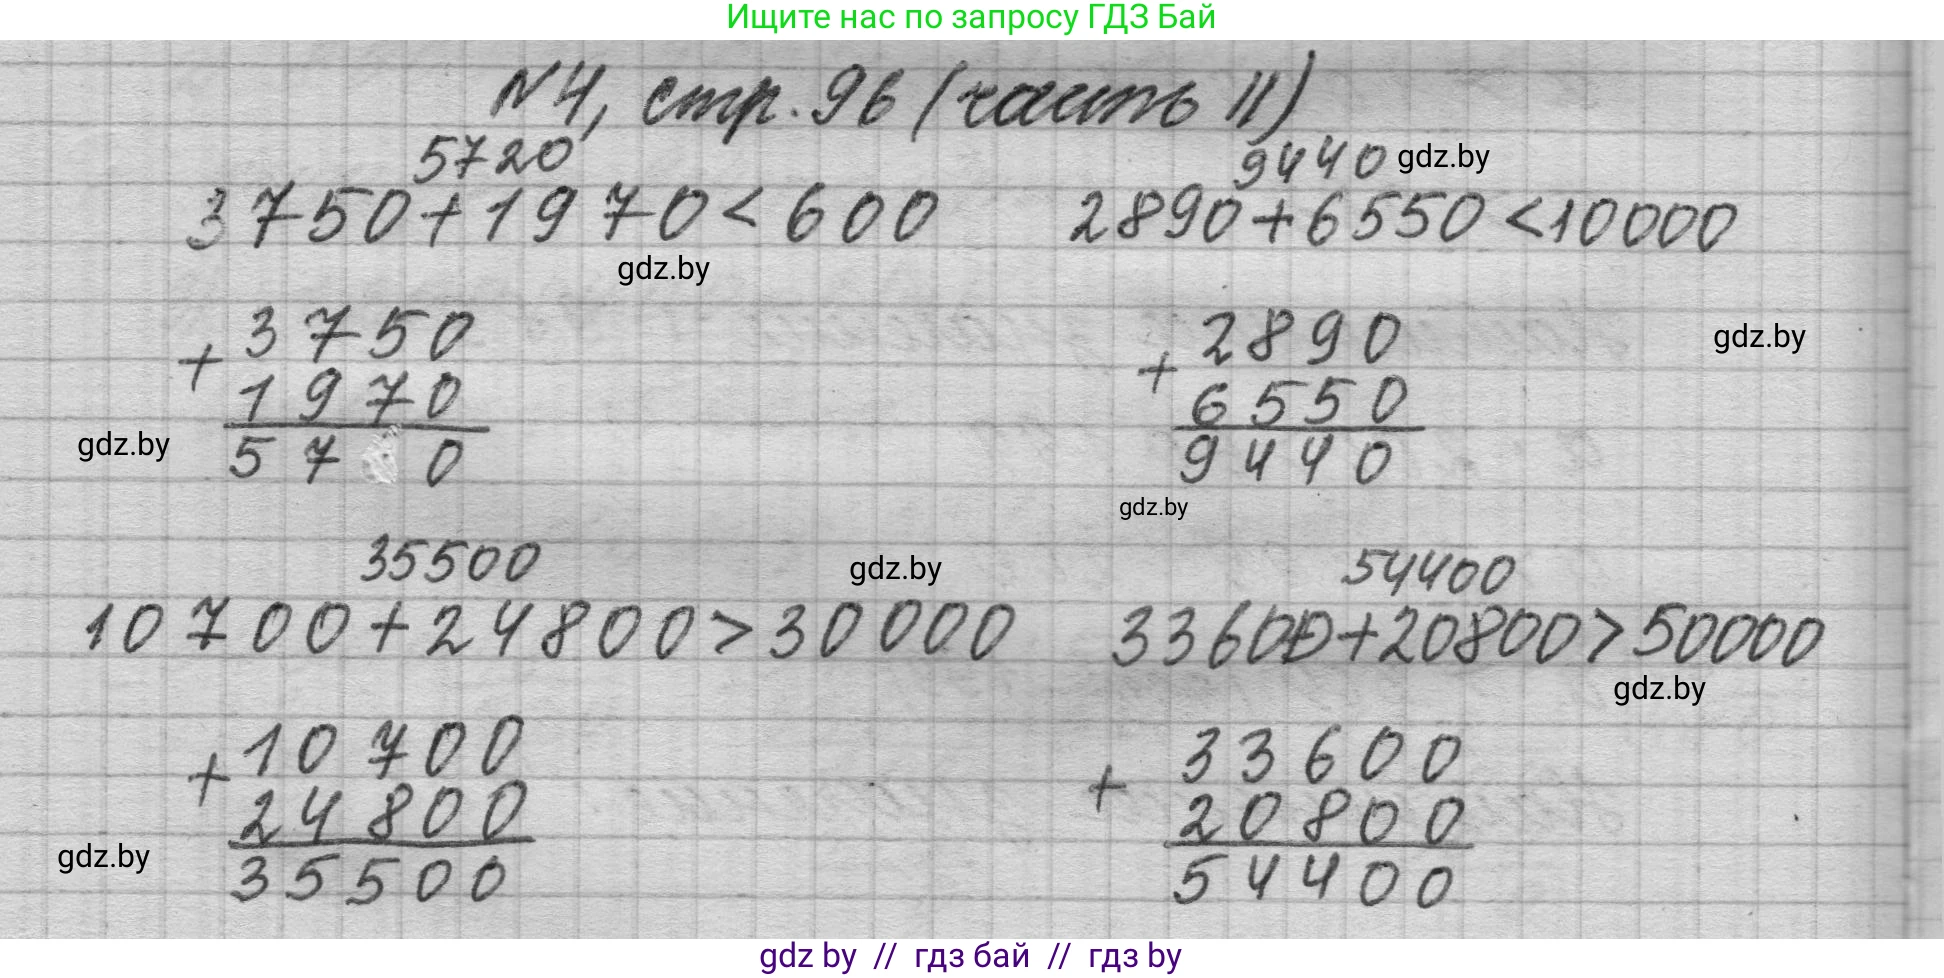 Ищите нас по запросу ГДЗ Бай
N4, стр. 96 (часть II)
5720
3750+1970<600
9440 gdz.by
2890+6550<10000
gdz.by
+ 3750
1970
57 0
gdz.by
+ 2890
6550
9440
gdz.by
gdz.by
35500
10700+24800>30000
gdz.by
54400
33600+20800>50000
gdz.by
+ 10700
24800
35500
gdz.by
+ 33600
20800
54400
gdz by // гдз бай // гдз by